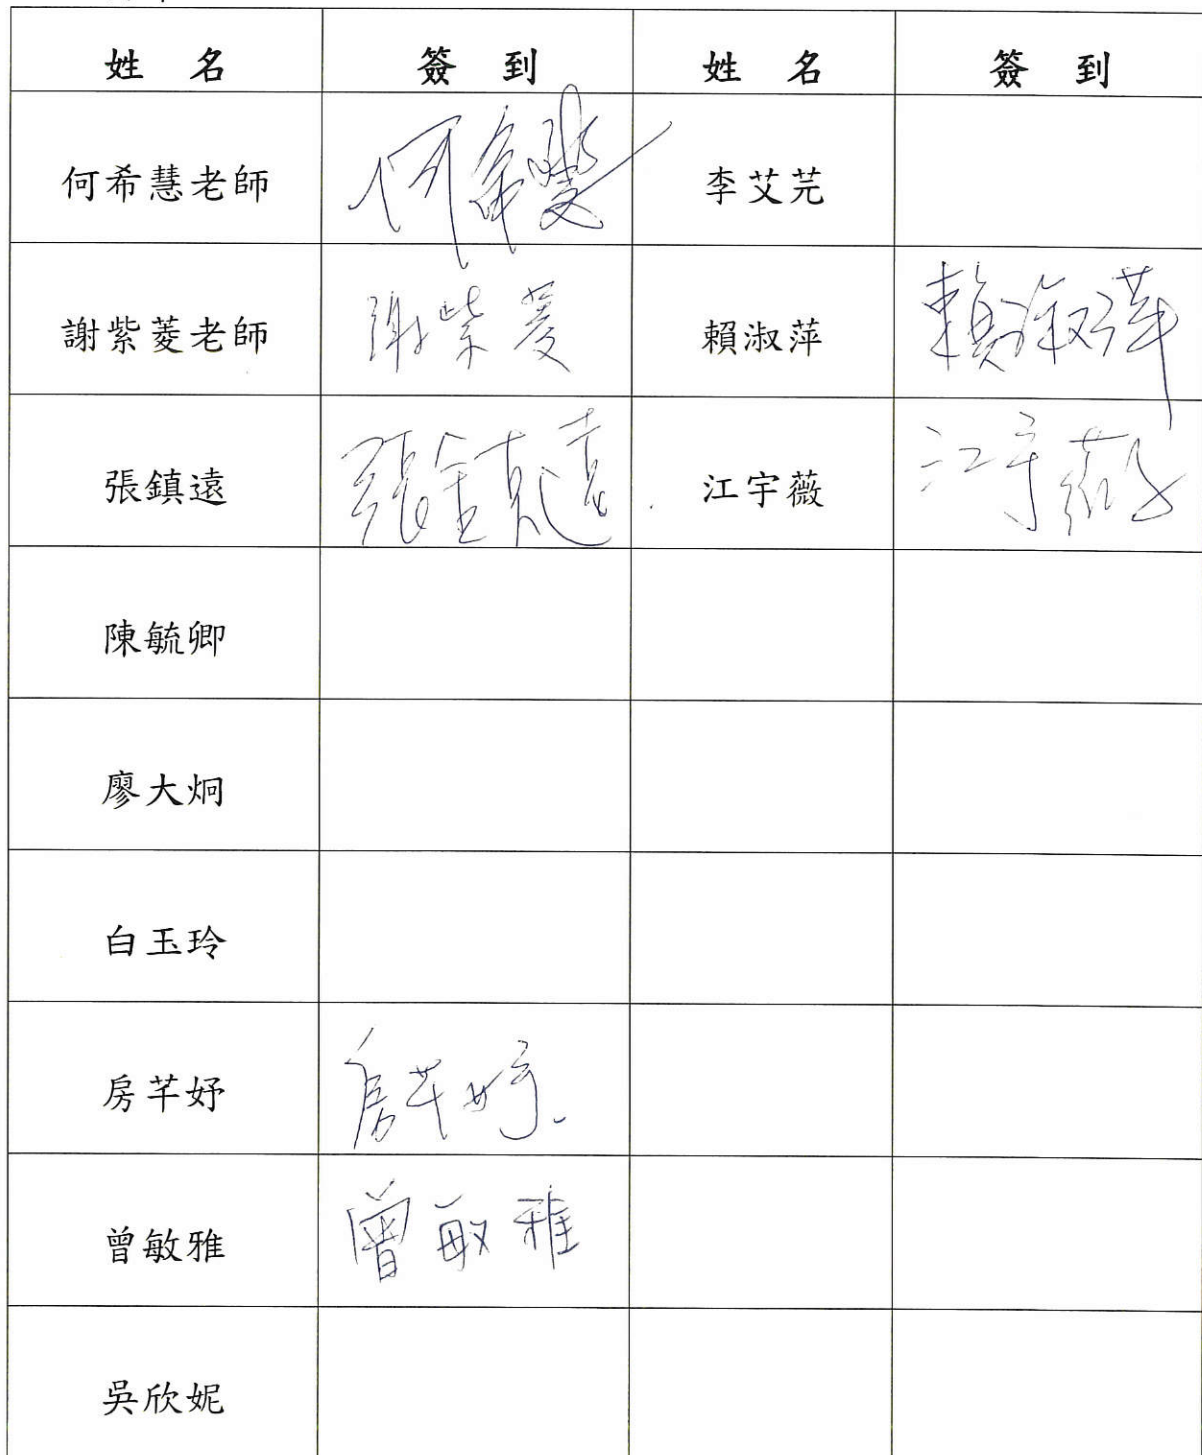 姓 名 簽 到 姓 名 簽 到
何希慧老師 何希慧 李艾芫
謝紫菱老師 謝紫菱 賴淑萍 賴淑萍
張鎮遠 張鎮遠 江宇薇 江宇薇
陳毓卿
廖大炯
白玉玲
房芊妤 房芊妤
曾敏雅 曾敏雅
吳欣妮